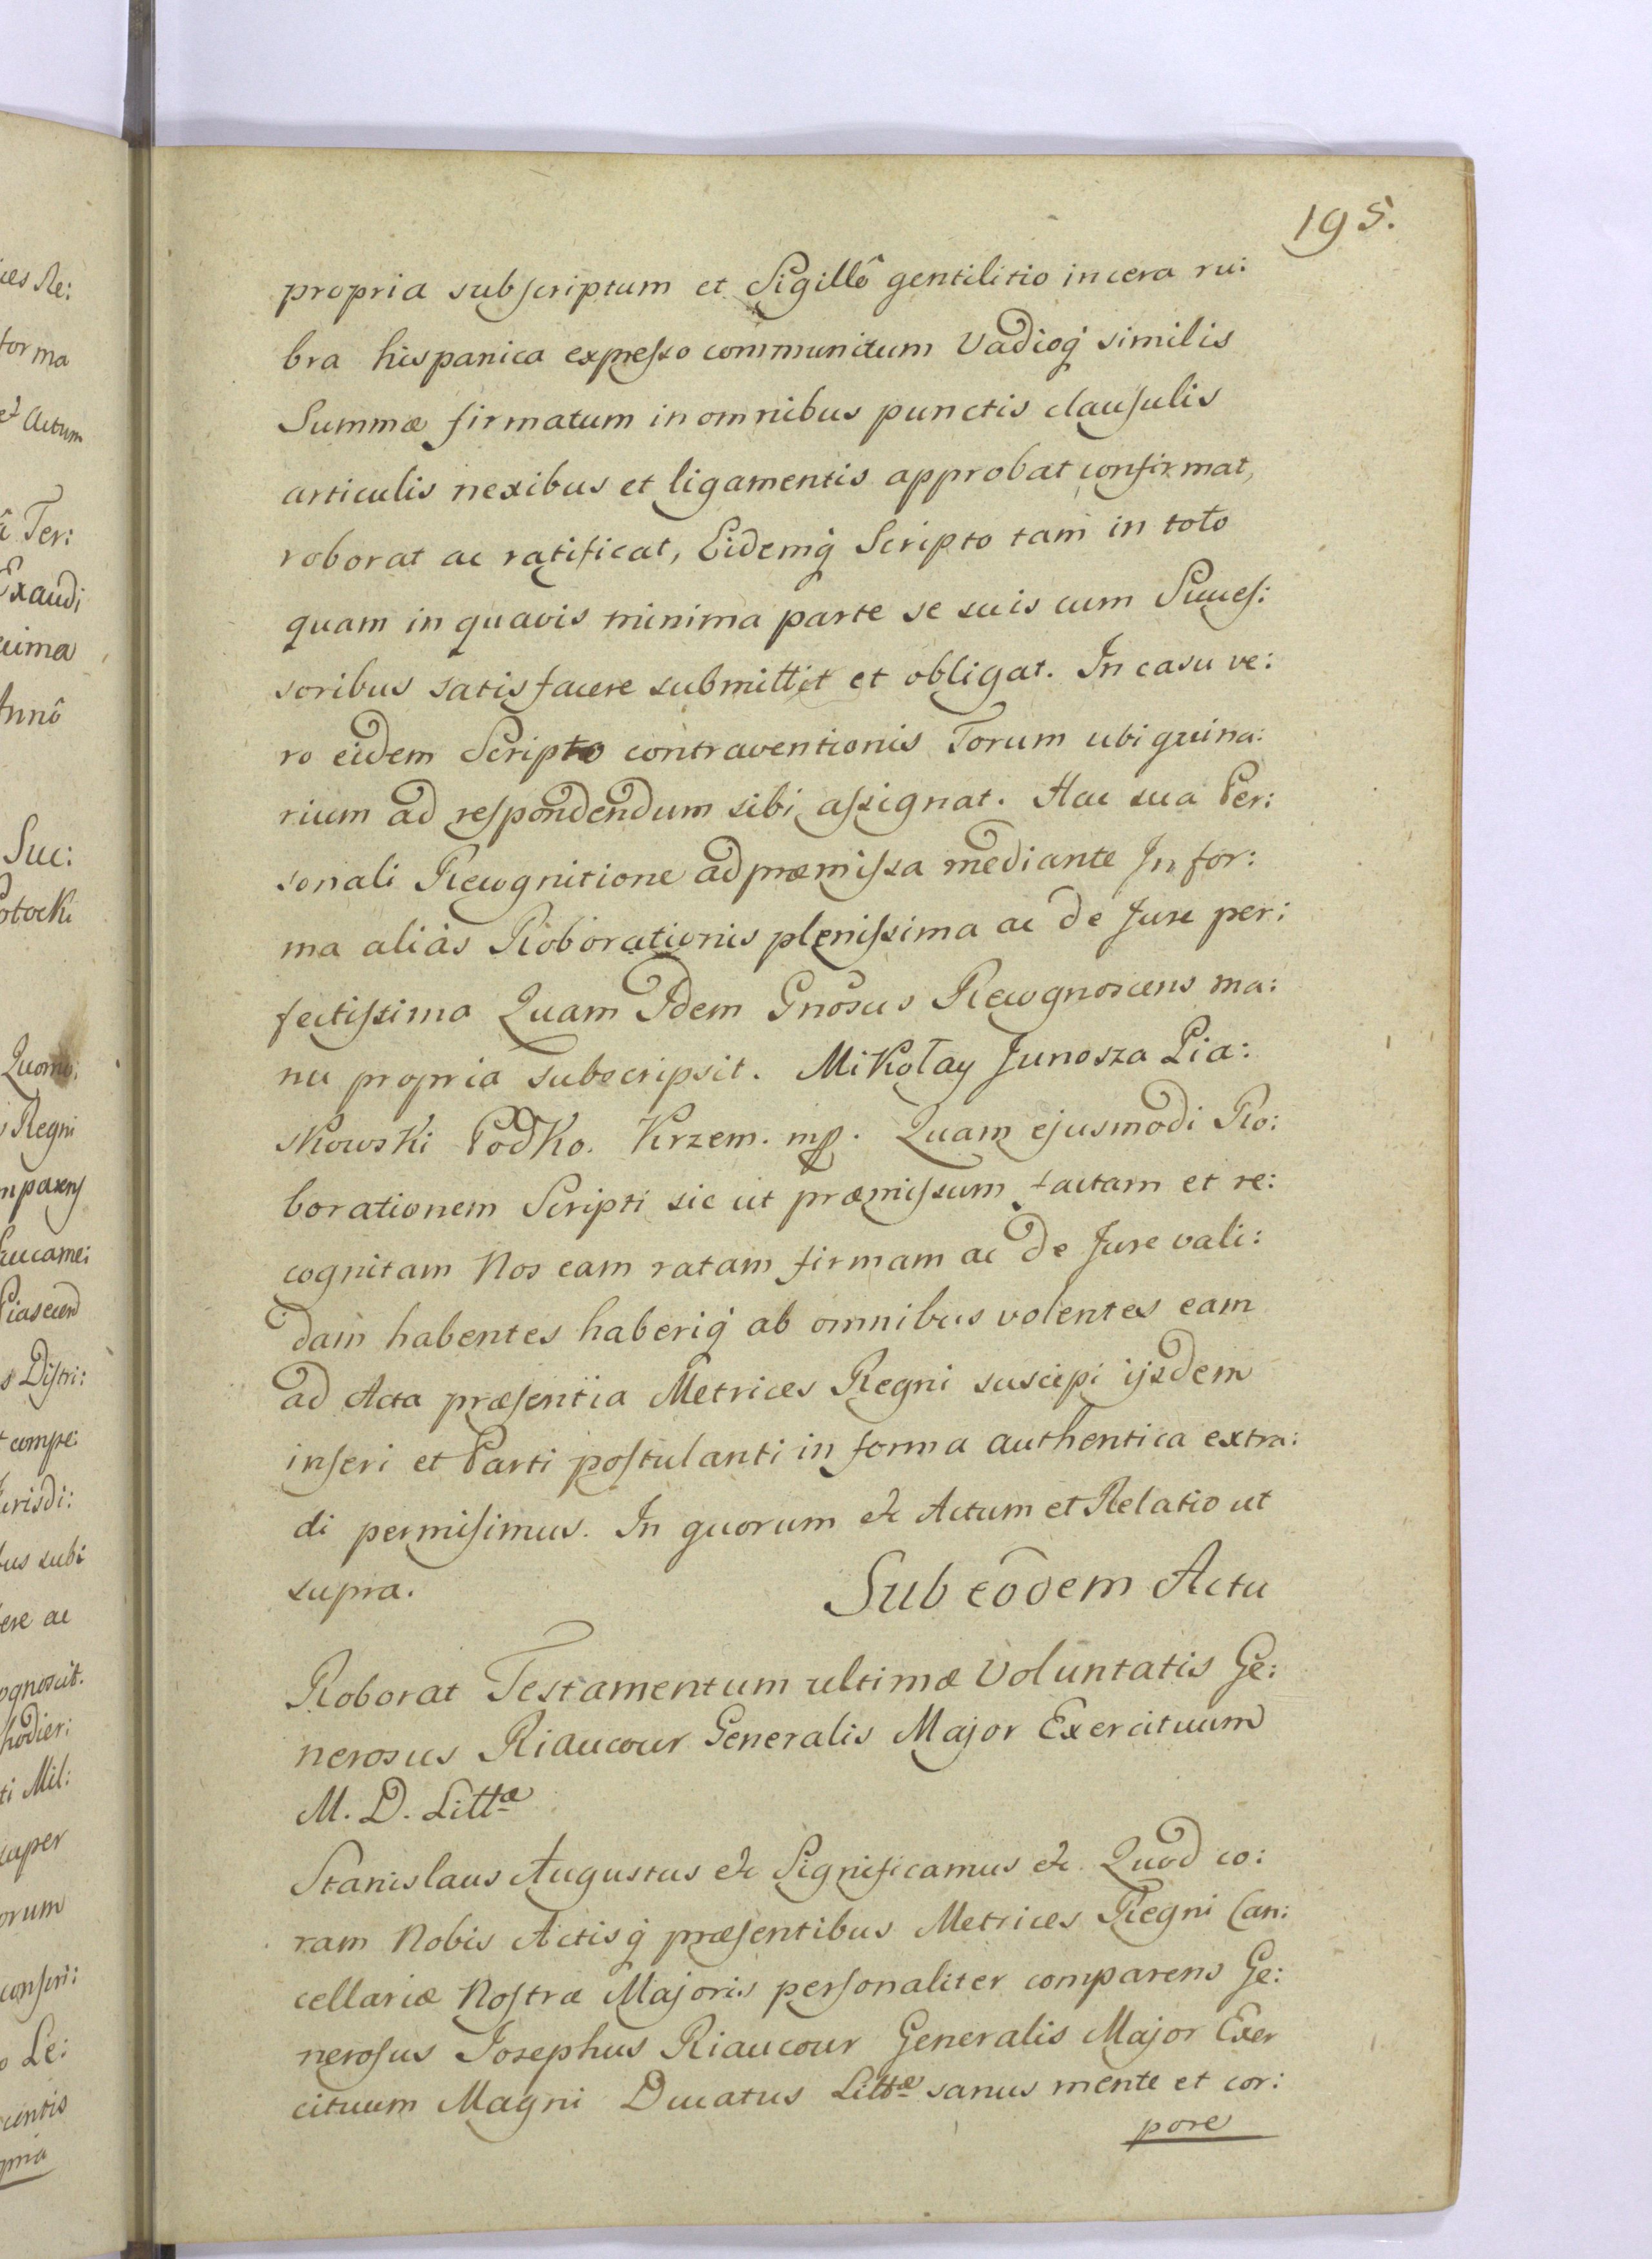 195.
propria subscriptum et Sigillô gentilitio in cera ru:
bra hispanica expresso communitum Vadioq́ similis
Summæ firmatum in omnibus punctis clausulis
articulis nexibus et ligamentis approbat confirmat,
roborat ac ratificat, Eidemq́ Scripto tam in toto
quam in quavis minima parte se suis cum Succes:
soribus satisfacere submittit et obligat. In casu ve:
ro eidem Scripto contraventionis Forum ubiquina:
rium ad respondendum sibi assignat. Hac sua Per:
sonali Recognitione ad præmissa mediante In for:
ma aliàs Roborationis plenissima ac de Jure per:
fectissima Quam Idem Gnosus Recognoscens ma:
nu propria subscripsit. Mikołay Junosza Pia:
skowski Podko. Krzem. mp. Quam ejusmodi Ro:
borationem Scripti sic ut præmissum factam et re:
cognitam Nos eam ratam firmam ac de Jure vali:
dam habentes haberiq́ ab omnibus volentes eam
ad Acta præsentia Metrices Regni suscipi ijsdem
inseri et Parti postulanti in forma authentica extra:
di permisimus. In quorum &c Actum et Relatio ut
supra.
Sub eodem Actu
Roborat Testamentum ultimæ Voluntatis Ge:
nerosus Riaucour Generalis Major Exercituum
M. D. Littæ
Stanislaus Augustus &c Significamus &c. Quod co:
ram Nobis Actisq́ præsentibus Metrices Regni Can:
cellariæ Nostræ Majoris personaliter comparens Ge:
nerosus Josephus Riaucour Generalis Major Exer
cituum Magni Ducatus Littæ sanus mente et cor:
pore